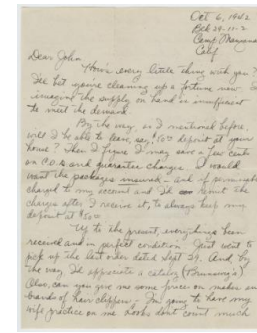 Oct 6, 1942
Blk 29-11-2
Camp Manzanar
Calif
Dear John
How's every little thing with you?
I'll bet you're cleaning up a fortune now I
imagine the supply on hand is insufficient
to meet the demand.
By the way, as I mentioned before,
will I be able to leave, say, $50 deposit at your
house? Then I figure I may save a few cents
on C.O.D. and guarantee charges. I would
want the packages – and if permissible
charged to my account and I'll remit the
charge after I receive it, to always keep my
deposit at $50
Up to the present, everything's been
received and in perfect condition. Just went to
pick up the last order dated Sept 29. And, by
the way I'd appreciate a catalog
Also, can you give me some prices on makes and
brands of hair clippers – I'm going to have my
wife practice on me looks don't count much